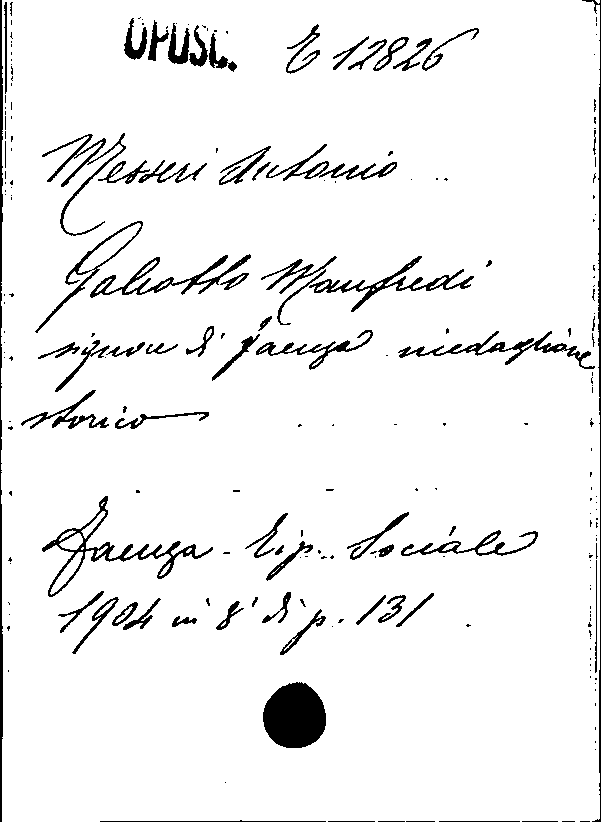 OPUSC. E 12826
Messeri Antonio
Galeotto Manfredi
signore di Faenza medaglione
storico
Faenza - Tip. Sociale
1904 in 8° di p. 131